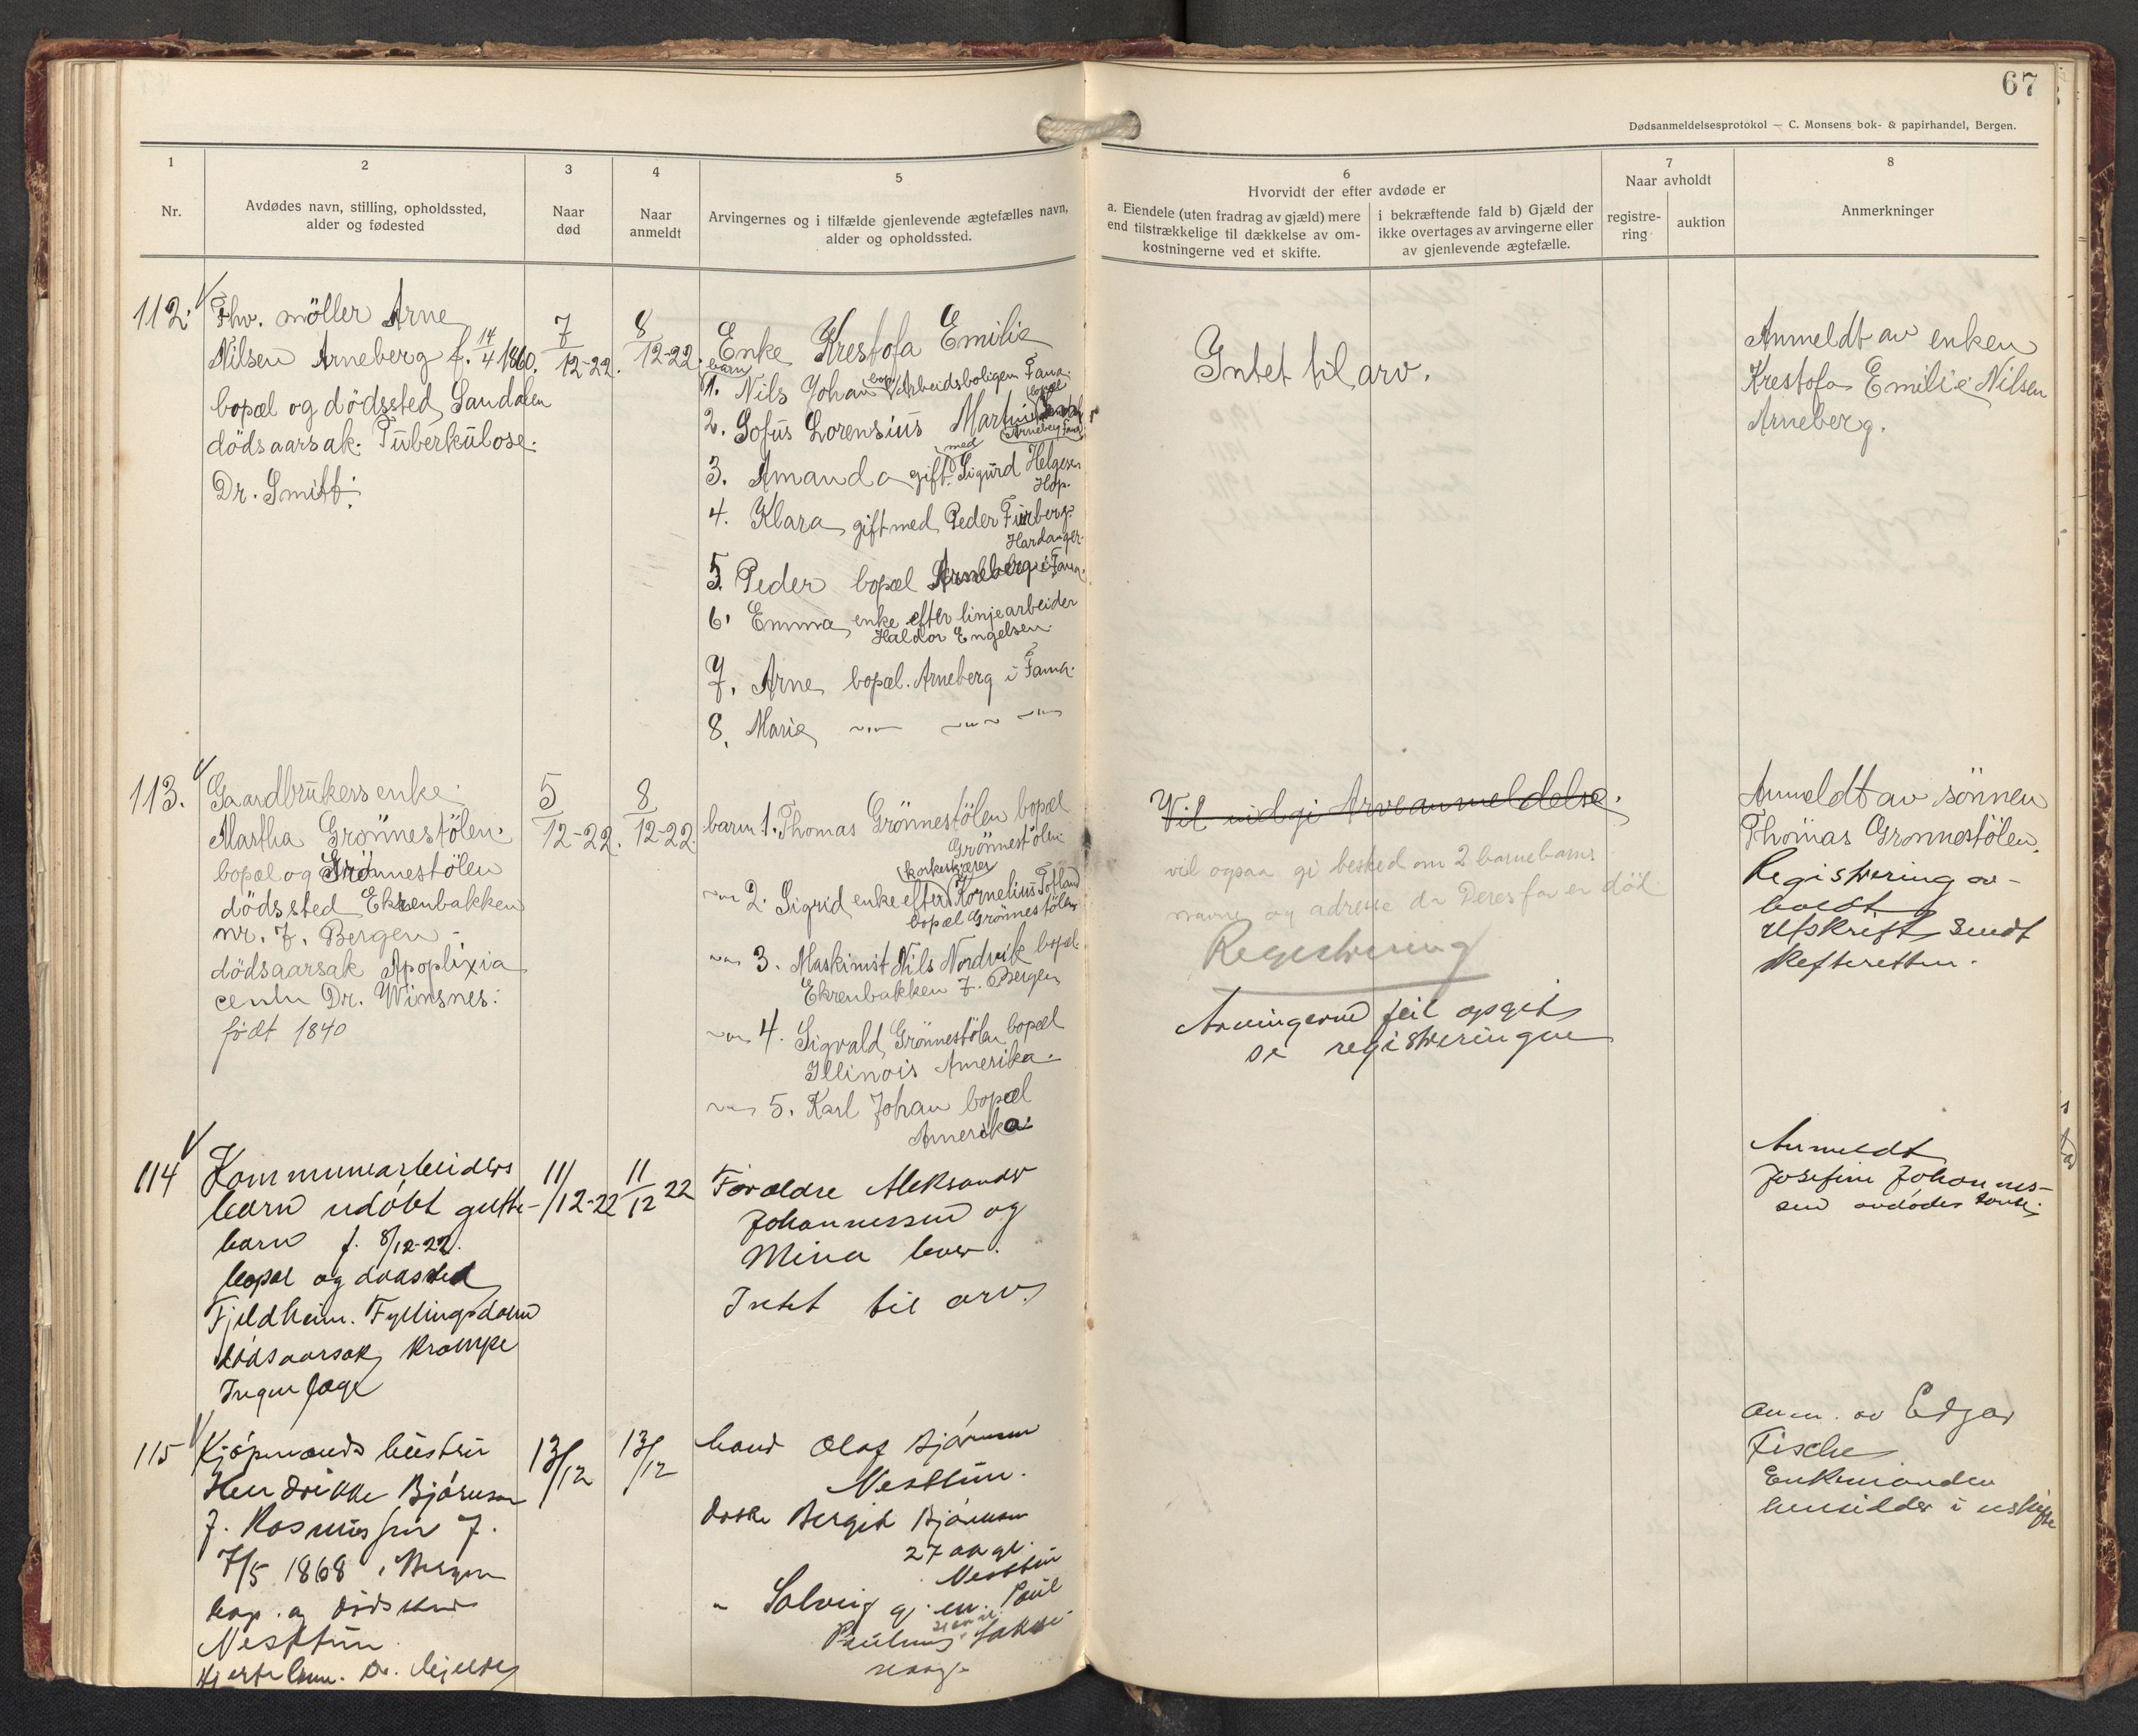 67
Dødsanmeldelsesprotokol — C. Monsens bok- & papirhandel, Bergen.
1
Nr.
2
Avdødes navn, stilling, opholdssted,
alder og fødested
3
Naar
død
4
Naar
anmeldt
5
Arvingernes og i tilfælde gjenlevende ægtefælles navn,
alder og opholdssted.
6
Hvorvidt der efter avdøde er
a. Eiendele (uten fradrag av gjæld) mere
end tilstrækkelige til dækkelse av om-
kostningerne ved et skifte.
i bekræftende fald b) Gjæld der
ikke overtages av arvingerne eller
av gjenlevende ægtefælle.
7
Naar avholdt
registre-
ring
auktion
8
Anmerkninger
112.
Fhv. möller Arne
Nilsen Arneberg f. 14/4 1860.
bopæl og dödssted Sandalen
dödsaarsak. Tuberkulose.
Dr. Smitt.
7/12-22.
8/12-22.
Enke Krestofa Emilie
barn
1. Nils Johan bop. Arbeidsboligen Fana.
2. Sofus Lorensius Martin bopæl
Arneberg Fana
3. Amanda gift med Sigurd Helgesen
Hop.
4. Klara gift med Peder Furberg.
Hardanger.
5. Peder bopæl Arneberg i Fana.
6. Emma enke efter linjearbeider
Haldor Engelsen.
7. Arne bopæl. Arneberg i Fana.
8. Marie
Intet til arv.
Anmeldt av enken
Krestofa Emilie Nilsen
Arneberg.
113.
Gaardbrukersenke
Martha Grönnestölen.
bopæl og Grönnestölen
dödssted Ekrenbakken
nr. 7. Bergen
dödsaarsak Apoplixia
Dr. Winsnes.
födt 1840
5/12-22.
8/12-22.
barn 1. Thomas Grönnestölen bopæl
Grönnestölen.
2. Sigrid enke efter korkeskjærer Kornelius Totland
bopæl Grönnestölen
3. Maskinist Nils Nordvik bopæl
Ekrenbakken 7. Bergen
4. Sigvald Grönnestölen bopæl
Illinois Amerika.
5. Karl Johan bopæl
Amerika.
Vil indgi Arveanmeldelse.
vil ogsaa gi besked om 2 barnebarns
navne og adresse da Deres far er död.
Regestrering
Arvingerne feil opgit
se registreringen
Anmeldt av sönnen
Thomas Grönnestölen.
Registrering av-
holdt
Utskrift sendt
skifteretten.
114
Kommunearbeiders
barn udöbt gutte-
barn f. 8/12-22.
bopæl og dödssted
Fjeldheim. Fyllingsdalen
dödsaarsak krampe
Ingen læge
11/12-22
11/12 22
Foræeldre Aleksander
Johannessen og
Mina lever.
Intet til arv.
Anmeldt
Josefine Johannes-
sen avdödes tante.
115
Kjöpmands hustru
Hendrikke Björnson
f. Rasmussen f.
7/5 1868 i Bergen
bop. og dödssted
Nesttun
13/12
13/12
Olaf Björnson
Nesttun.
Bergit Björnson
27 aar gl.
Nesttun
" Solveig
Paul
anm. av Edgar
Fischer
Enkemanden
hensidder i uskifte